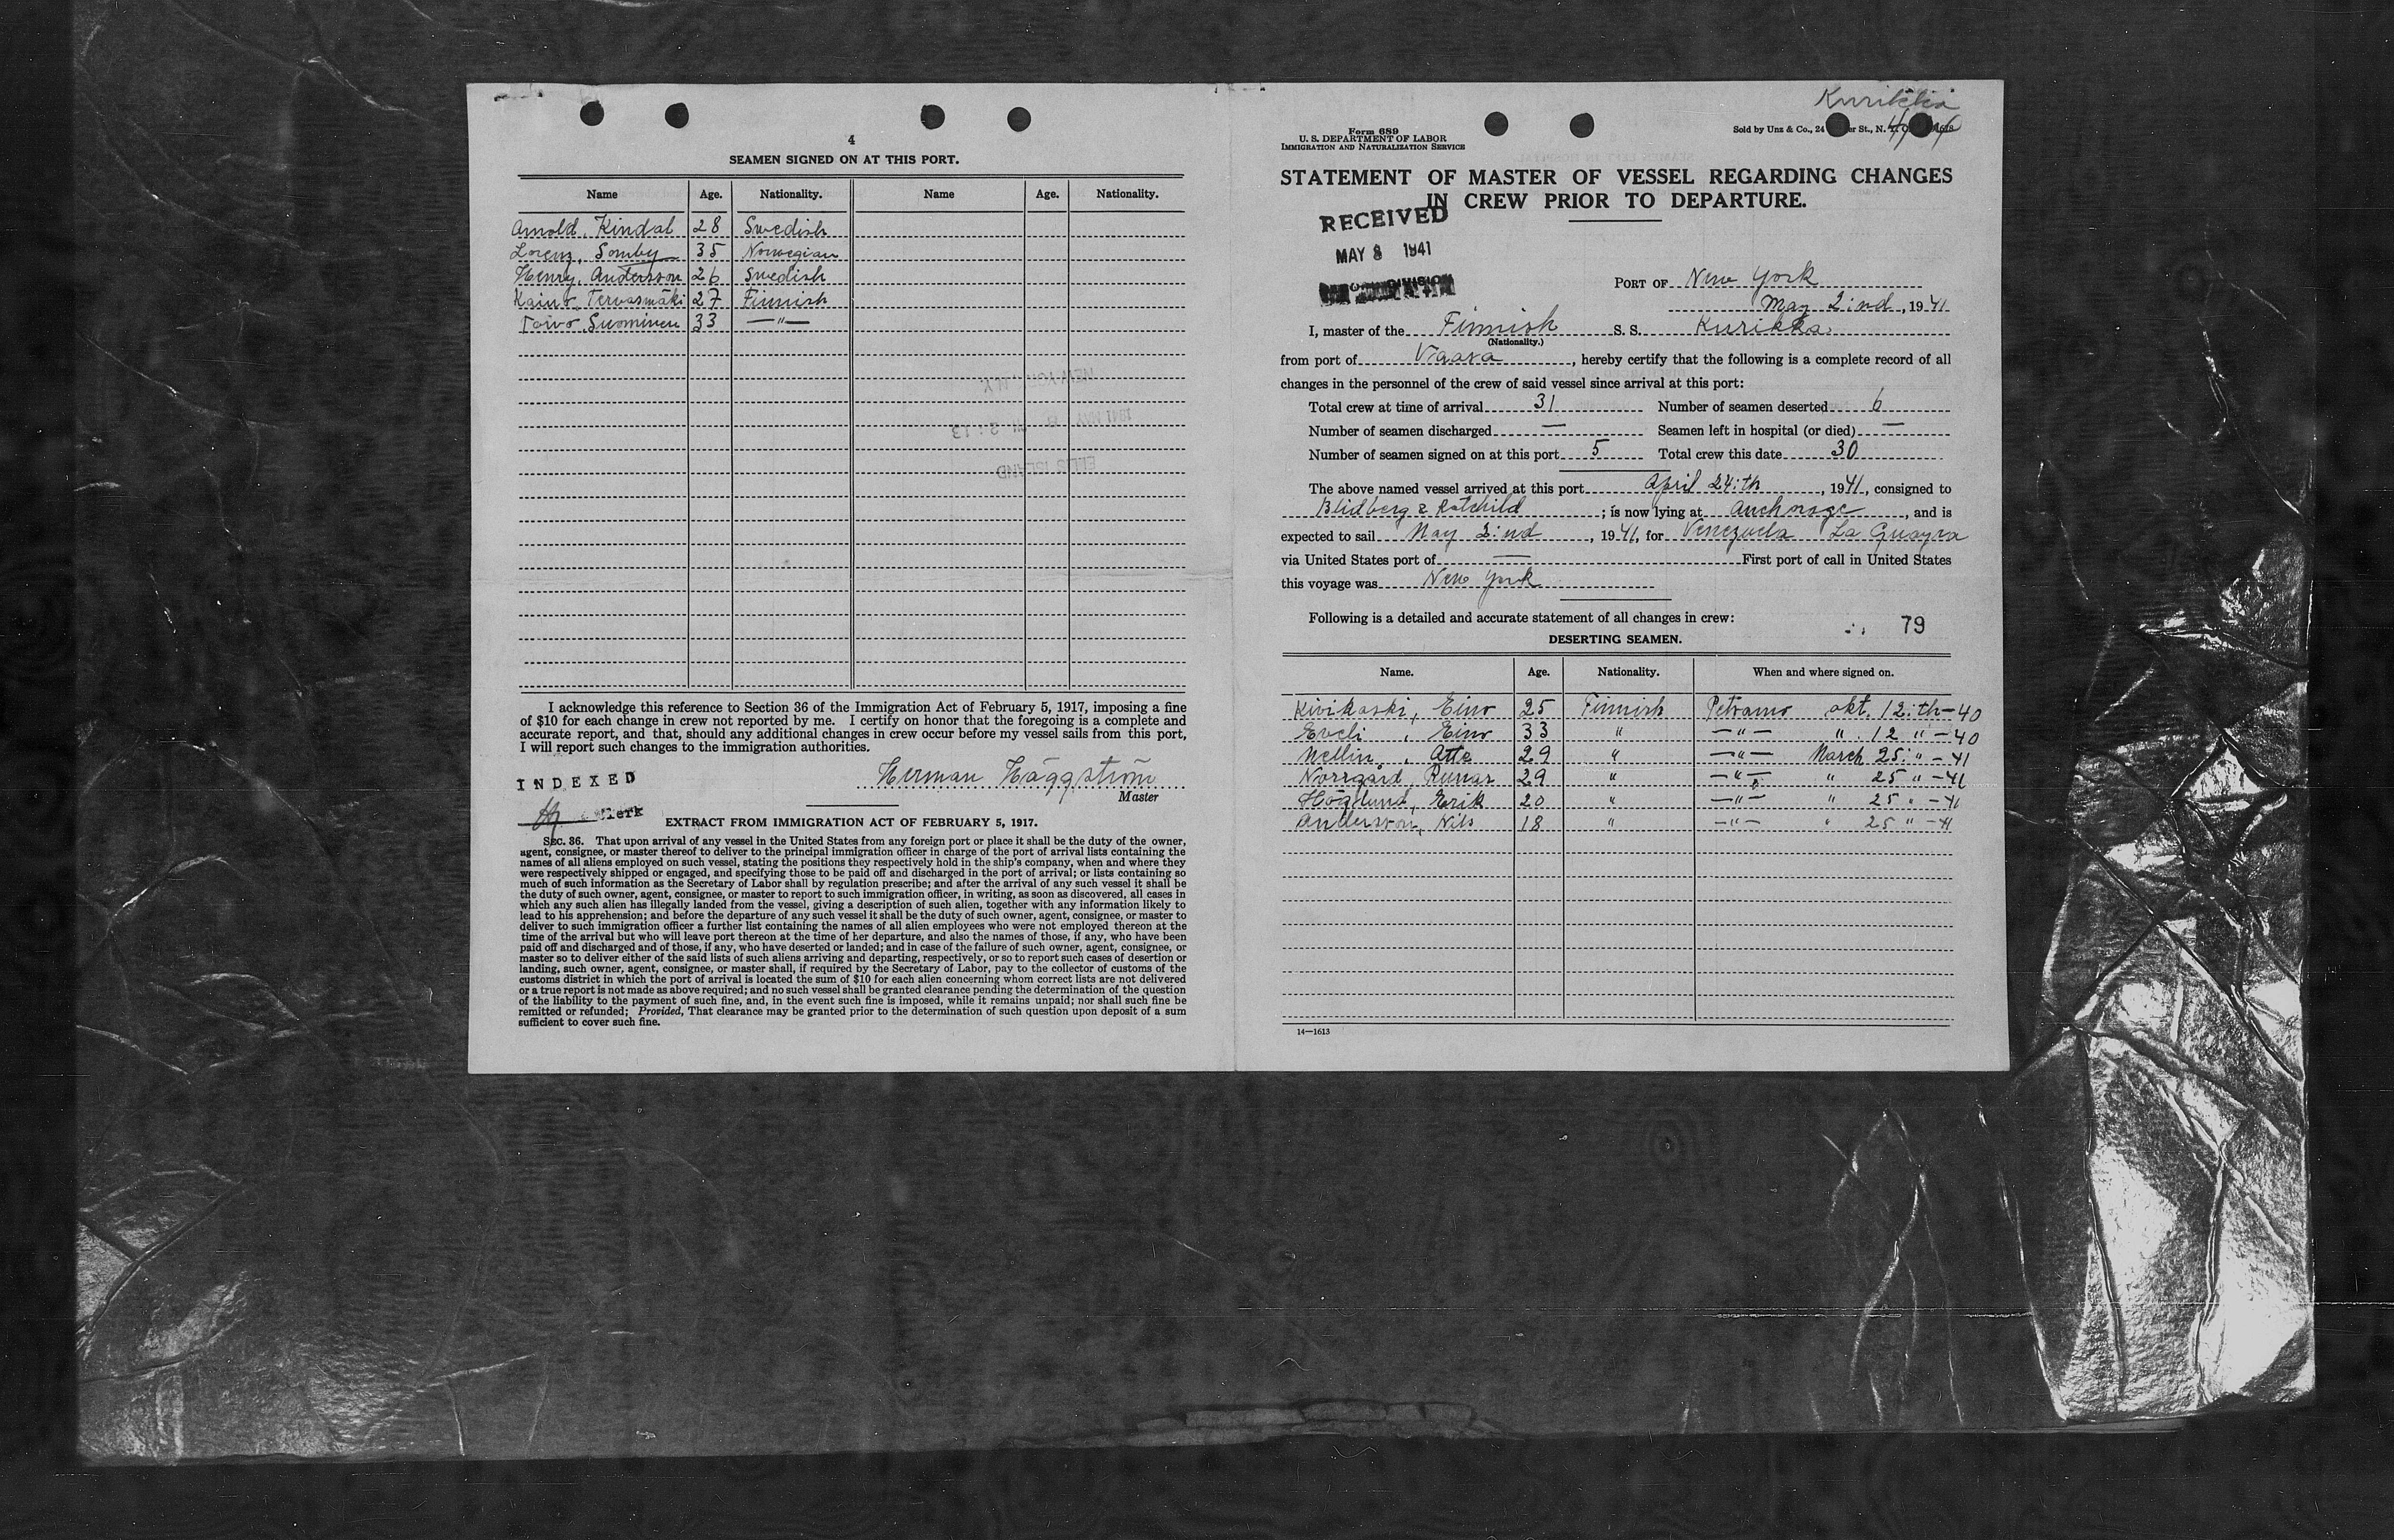 4
SEAMEN SIGNED ON AT THIS PORT.
Name Age. Nationality. Name Age. Nationality.
Arnold, Kindal 28 Swedish
Lorenz, Somby 35 Norwegian
Henry, Andersson 26 Swedish
Kaino, Tervasmäki 27 Finnish
Toivo, Suominen 33 —"—
NEW YORK, N.Y.
1941 MAY 8 2:13
ELLIS ISLAND
I acknowledge this reference to Section 36 of the Immigration Act of February 5, 1917, imposing a fine
of $10 for each change in crew not reported by me. I certify on honor that the foregoing is a complete and
accurate report, and that, should any additional changes in crew occur before my vessel sails from this port,
I will report such changes to the immigration authorities.
INDEXED
Herman Häggström
Master
Clerk
EXTRACT FROM IMMIGRATION ACT OF FEBRUARY 5, 1917.
SEC. 36. That upon arrival of any vessel in the United States from any foreign port or place it shall be the duty of the owner,
agent, consignee, or master thereof to deliver to the principal immigration officer in charge of the port of arrival lists containing the
names of all aliens employed on such vessel, stating the positions they respectively hold in the ship's company, when and where they
were respectively shipped or engaged, and specifying those to be paid off and discharged in the port of arrival; or lists containing so
much of such information as the Secretary of Labor shall by regulation prescribe; and after the arrival of any such vessel it shall be
the duty of such owner, agent, consignee, or master to report to such immigration officer, in writing, as soon as discovered, all cases in
which any such alien has illegally landed from the vessel, giving a description of such alien, together with any information likely to
lead to his apprehension; and before the departure of any such vessel it shall be the duty of such owner, agent, consignee, or master to
deliver to such immigration officer a further list containing the names of all alien employees who were not employed thereon at the
time of the arrival but who will leave port thereon at the time of her departure, and also the names of those, if any, who have been
paid off and discharged and of those, if any, who have deserted or landed; and in case of the failure of such owner, agent, consignee, or
master so to deliver either of the said lists of such aliens arriving and departing, respectively, or so to report such cases of desertion or
landing, such owner, agent, consignee, or master shall, if required by the Secretary of Labor, pay to the collector of customs of the
customs district in which the port of arrival is located the sum of $10 for each alien concerning whom correct lists are not delivered
or a true report is not made as above required; and no such vessel shall be granted clearance pending the determination of the question
of the liability to the payment of such fine, and, in the event such fine is imposed, while it remains unpaid; nor shall such fine be
remitted or refunded; Provided, That clearance may be granted prior to the determination of such question upon deposit of a sum
sufficient to cover such fine.
Form 689
U. S. DEPARTMENT OF LABOR
IMMIGRATION AND NATURALIZATION SERVICE
Sold by Unz & Co., 24 er St., N.
STATEMENT OF MASTER OF VESSEL REGARDING CHANGES
IN CREW PRIOR TO DEPARTURE.
RECEIVED
MAY 8 1941
DIVISION
PORT OF New York
May 2:nd, 1941
I, master of the Finnish S. S. Kurikka
(Nationality.)
from port of Vaasa, hereby certify that the following is a complete record of all
changes in the personnel of the crew of said vessel since arrival at this port:
Total crew at time of arrival 31 Number of seamen deserted 6
Number of seamen discharged — Seamen left in hospital (or died) —
Number of seamen signed on at this port 5 Total crew this date 30
The above named vessel arrived at this port April 24:th, 1941, consigned to
Blidberg & Rotchild; is now lying at Anchorage, and is
expected to sail May 2:nd, 1941, for Venezuela La Guayra
via United States port of — First port of call in United States
this voyage was New York
Following is a detailed and accurate statement of all changes in crew:
79
DESERTING SEAMEN.
Name. Age. Nationality. When and where signed on.
Kivikoski, Eino 25 Finnish Petsamo okt. 12:th-40
Eveli, Eino 33 " —"— " 12 " -40
Nellin, Atte 29 " —"— March 25: " -41
Norrgård, Runar 29 " —"— " 25 " -41
Höglund, Erik 20 " —"— " 25 " -41
Andersson, Nils 18 " —"— " 25 " -41
14—1613